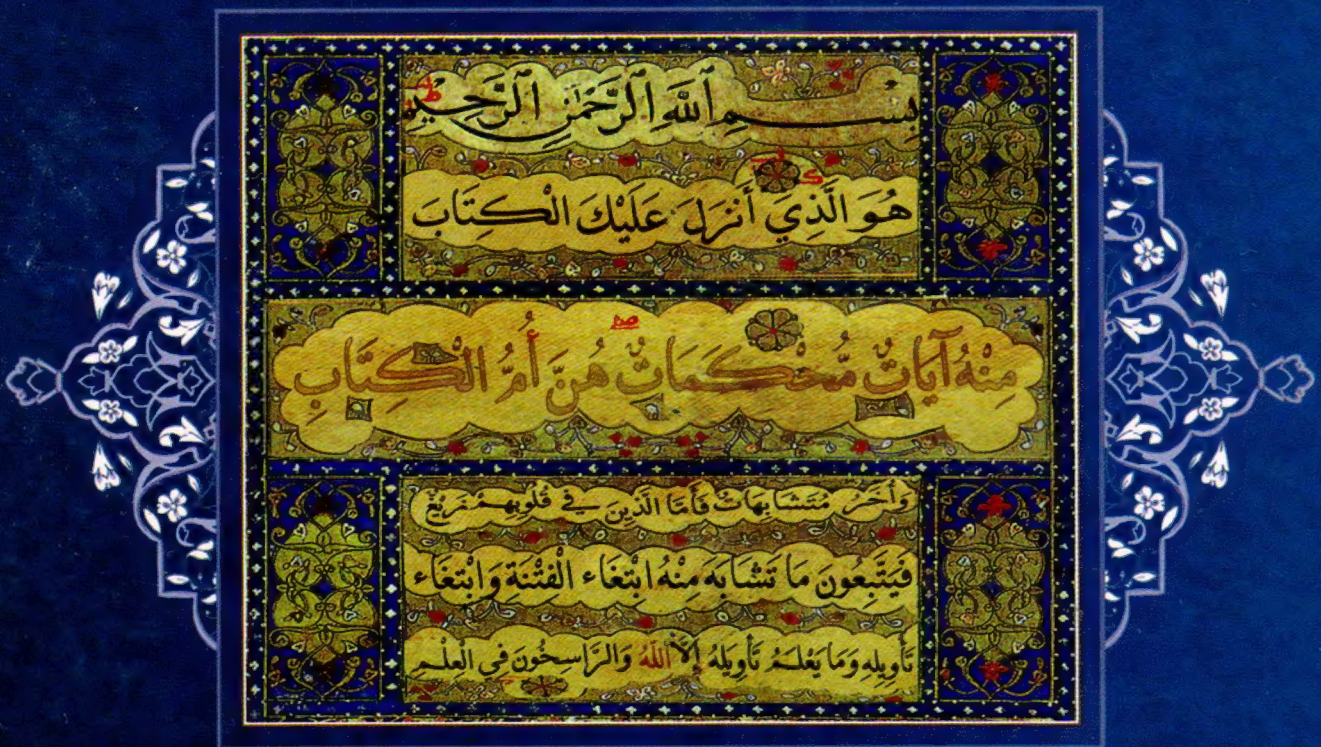 بِسْمِ ٱللَّهِ ٱلرَّحْمَٰنِ ٱلرَّحِيمِ
هُوَ الَّذِي أَنْزَلَ عَلَيْكَ الْكِتَابَ
مِنْهُ آيَاتٌ مُّحْكَمَاتٌ هُنَّ أُمُّ الْكِتَابِ
وَأُخَرُ مُتَشَابِهَاتٌ فَأَمَّا الَّذِينَ فِي قُلُوبِهِمْ زَيْغٌ
فَيَتَّبِعُونَ مَا تَشَابَهَ مِنْهُ ابْتِغَاء الْفِتْنَةِ وَابْتِغَاء
تَأْوِيلِهِ وَمَا يَعْلَمُ تَأْوِيلَهُ إِلاَّ اللّهُ وَالرَّاسِخُونَ فِي الْعِلْمِ